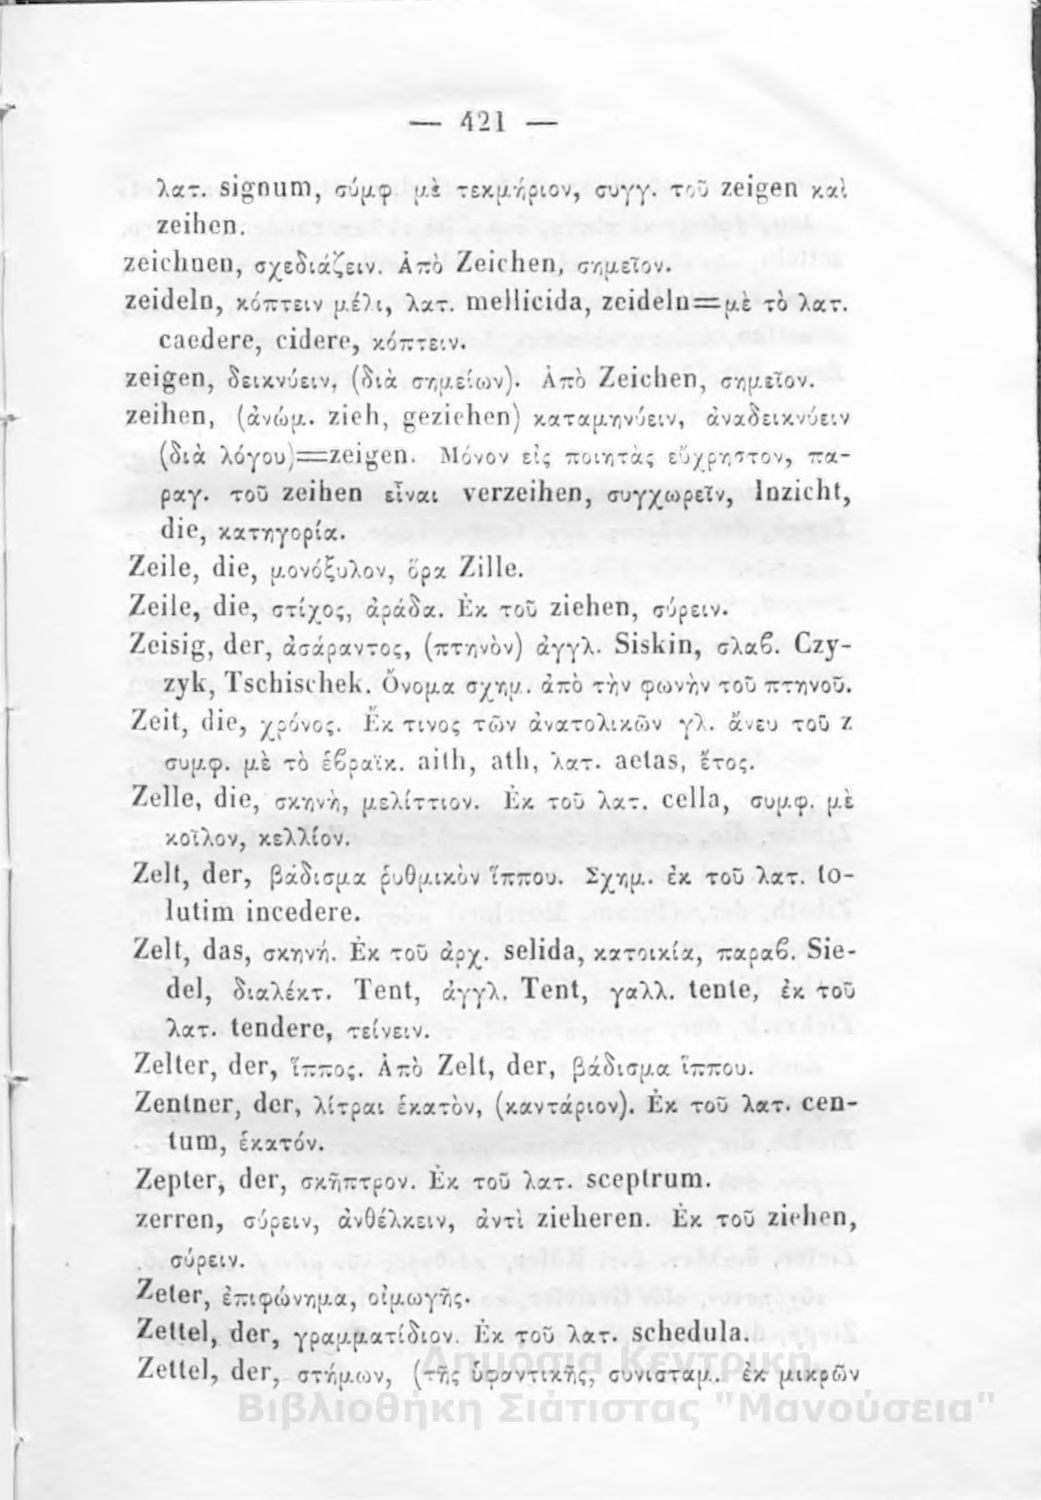 — 421 —
λατ. signum, σύμφ. μὲ τεκμήριον, συγγ. τοῦ zeigen καὶ
zeihen.
zeichnen, σχεδιάζειν. Ἀπὸ Zeichen, σημεῖον.
zeideln, κόπτειν μέλι, λατ. mellicida, zeideln=μὲ τὸ λατ.
caedere, cidere, κόπτειν.
zeigen, δεικνύειν, (διὰ σημείων). Ἀπὸ Zeichen, σημεῖον.
zeihen, (ἀνώμ. zieh, geziehen) καταμηνύειν, ἀναδεικνύειν
(διὰ λόγου)=zeigen. Μόνον εἰς ποιητὰς εὔχρηστον, πα-
ραγ. τοῦ zeihen εἶναι verzeihen, συγχωρεῖν, Inzicht,
die, κατηγορία.
Zeile, die, μονόξυλον, ὅρα Zille.
Zeile, die, στίχος, ἀράδα. Ἐκ τοῦ ziehen, σύρειν.
Zeisig, der, ἀσάραντος, (πτηνὸν) ἀγγλ. Siskin, σλαβ. Czy-
zyk, Tschischek. Ὄνομα σχημ. ἀπὸ τὴν φωνὴν τοῦ πτηνοῦ.
Zeit, die, χρόνος. Ἔκ τινος τῶν ἀνατολικῶν γλ. ἄνευ τοῦ z
συμφ. μὲ τὸ ἑβραϊκ. aith, ath, λατ. aetas, ἔτος.
Zelle, die, σκηνὴ, μελίττιον. Ἐκ τοῦ λατ. cella, συμφ. μὲ
κοῖλον, κελλίον.
Zelt, der, βάδισμα ῥυθμικὸν ἵππου. Σχημ. ἐκ τοῦ λατ. to-
lutim incedere.
Zelt, das, σκηνή. Ἐκ τοῦ ἀρχ. selida, κατοικία, παραβ. Sie-
del, διαλέκτ. Tent, ἀγγλ. Tent, γαλλ. tente, ἐκ τοῦ
λατ. tendere, τείνειν.
Zelter, der, ἵππος. Ἀπὸ Zelt, der, βάδισμα ἵππου.
Zentner, der, λίτραι ἑκατὸν, (καντάριον). Ἐκ τοῦ λατ. cen-
tum, ἑκατόν.
Zepter, der, σκῆπτρον. Ἐκ τοῦ λατ. sceptrum.
zerren, σύρειν, ἀνθέλκειν, ἀντὶ zieheren. Ἐκ τοῦ ziehen,
σύρειν.
Zeter, ἐπιφώνημα, οἰμωγῆς.
Zettel, der, γραμματίδιον. Ἐκ τοῦ λατ. schedula.
Zettel, der, στήμων, (τῆς ὑφαντικῆς, συνισταμ. ἐκ μικρῶν
Δημόσια Κεντρική
Βιβλιοθήκη Σιάτιστας "Μανούσεια"